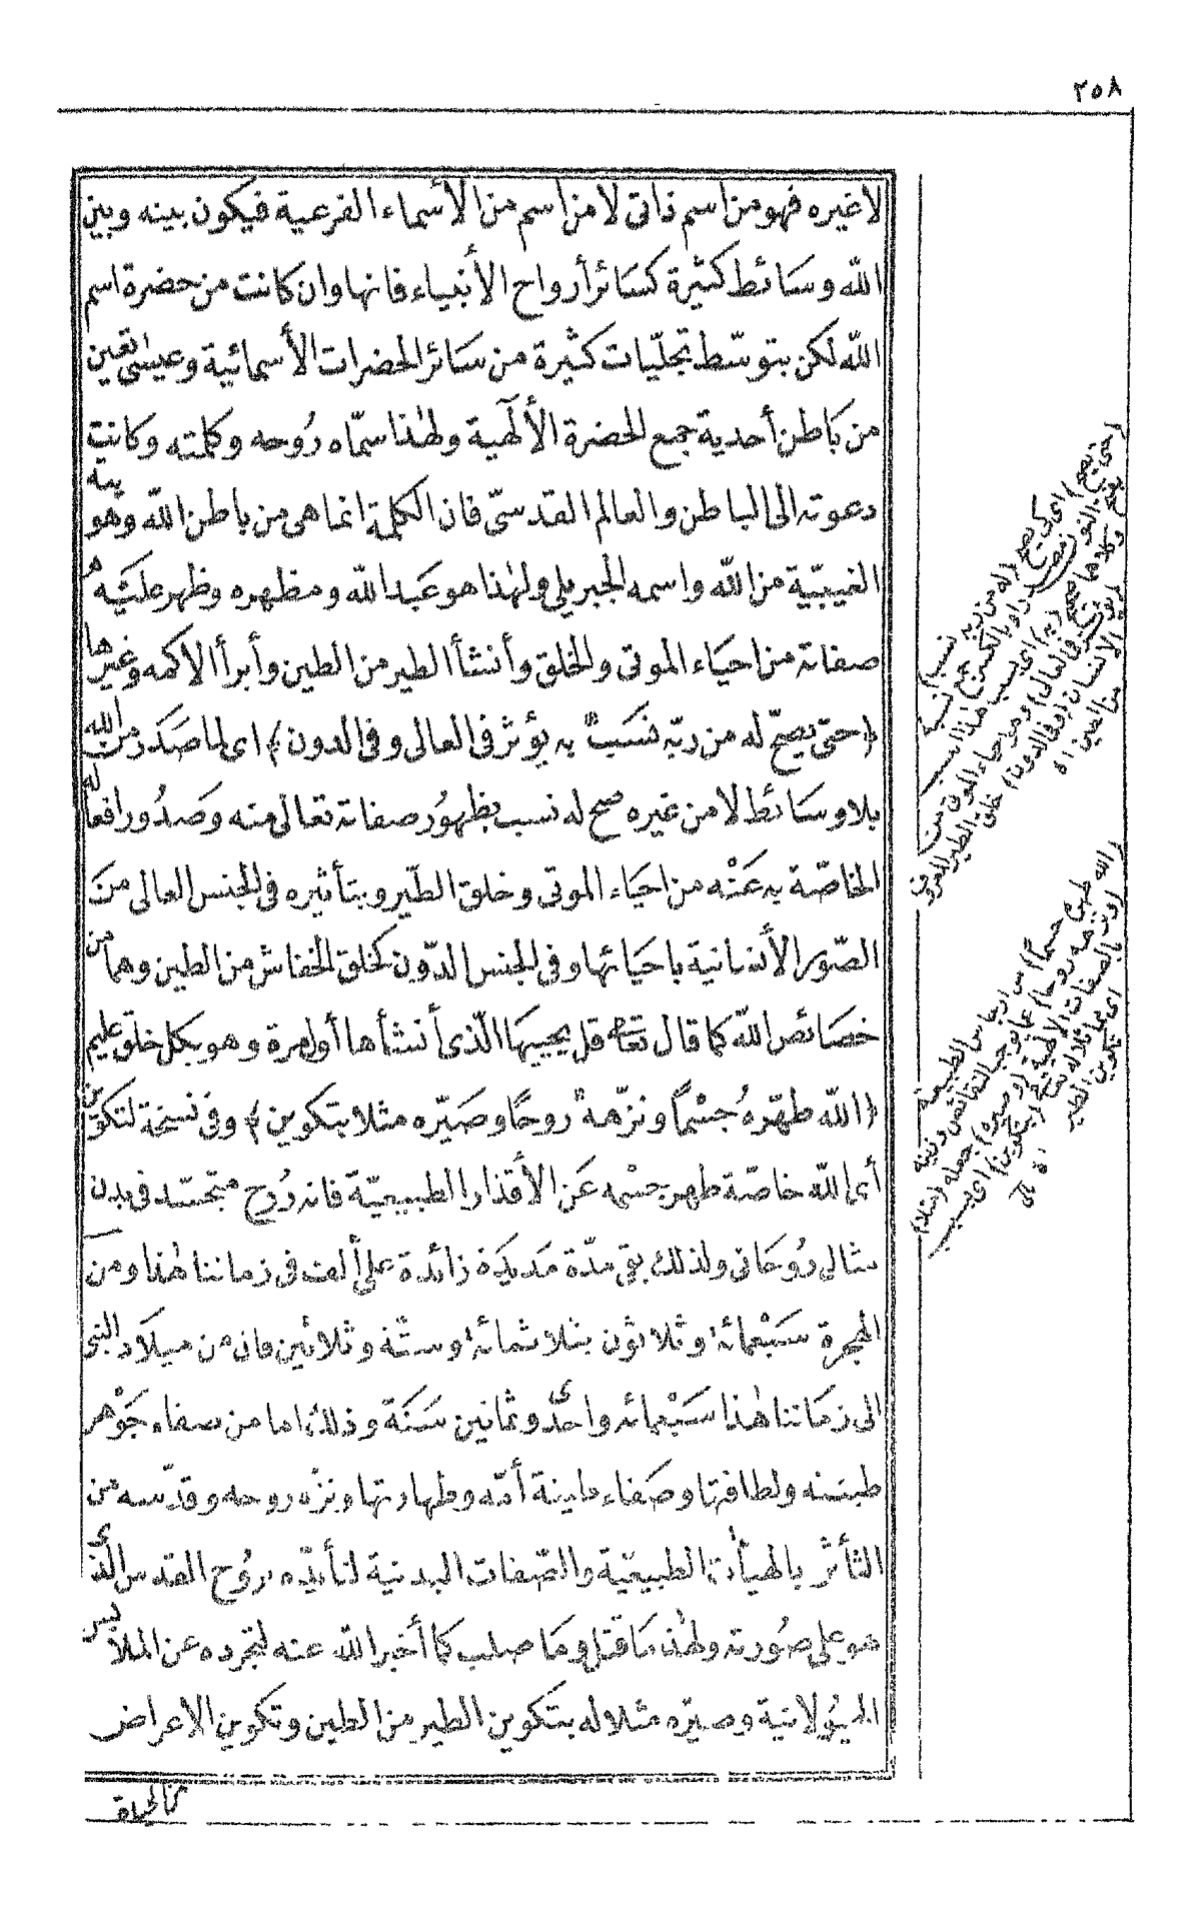 ٢٥٨
لا غيره فهو من اسم ذاتى لا من اسم من الأسماء الفرعية فيكون بينه وبين
الله وسائط كثيرة كسائر أرواح الأنبياء فانها وان كانت من حضرة اسم
الله لكن بتوسّط تجلّيات كثيرة من سائر الحضرات الأسمائية وعيسى تعين
من باطن أحدية جمع الحضرة الألٓهية ولهذا سمّاه رُوحه وكلمته وكانت
دعوته الى الباطن والعالم القدسىّ فان الكلمة انما هى من باطن الله وهويته
الغيبيّية من الله واسمه الجبريلى ولهذا هو عبد الله ومظهره وظهر عليه
صفاته من احياء الموتى والخلق وأنشأ الطير من الطين وأبرأ الاكمه وغيرها
﴿حتى يصحّ له من ربّه نسبٌ به يؤثر فى العالى وفى الدون﴾ اى لما صدر من الله
بلا وسائط لا من غيره صح له نسب بظهُور صفاته تعالى منه وصدُور افعاله
الخاصّة به عنْه من احياء الموتى وخلق الطّير وبتأثيره فى الجنس العالى من
الصّور الأنسانية باحيائها وفى الجنس الدّون كخلق الخفاش من الطين وهما من
خصائص الله كما قال تعالى قل يحييها الّذى أنشأها أول مرة وهو بكل خلق عليم
﴿الله طهّره جسْماً ونزّهه روحًا وصيّره مثلا بتكوين﴾ وفى نسخة لتكوين
أى الله خاصّة طهر جسْمه عن الأقذار الطبيعيّة فانه رُوح متجسّد فى بدن
مثالى رُوحانى ولذلك بقى مدّة مديدة زائدة على ألف فى زماننا هذا ومن
الهجرة سبْعمائة وثلاثون بثلاثمائة وستّة وثلاثين فان من ميلاد النبى
الى زماننا هذا سبْعمائه واحدى وثمانين سنَة وذلك اما من صفاء جوْهر
طينته ولطافتها وصفاء طينة أمّه وطهارتها ونزّه روحه وقدّسه من
التأثّر بالهيأت الطبيعيّة والصّفات البدنية لتأيّده بروُح القدس الّذى
هو على صُورته ولهذا ما قتل وما صلب كما أخبر الله عنه لتجرده عن الملابس
الهيُولانية وصيّره مثلا له بتكوين الطير من الطين وتكوين الاعراض
(حتى يصح) اى كى يصح (له من ربه نسب)
(فى العالى) وهو احياء الموتى من
الانسان (وفى الدون) خلق الطير المعروف
من الطين اه
(الله طهره جسما) من ارجاس الطبيعة
(ونزهه روحا) عما يوجب النقائص وزينه
بالصفات الالهية (وصيره) جعله (مثلا)
اى مماثلا له تعالى (بتكوين) اى بسبب
تكوين الطير
اه بالى